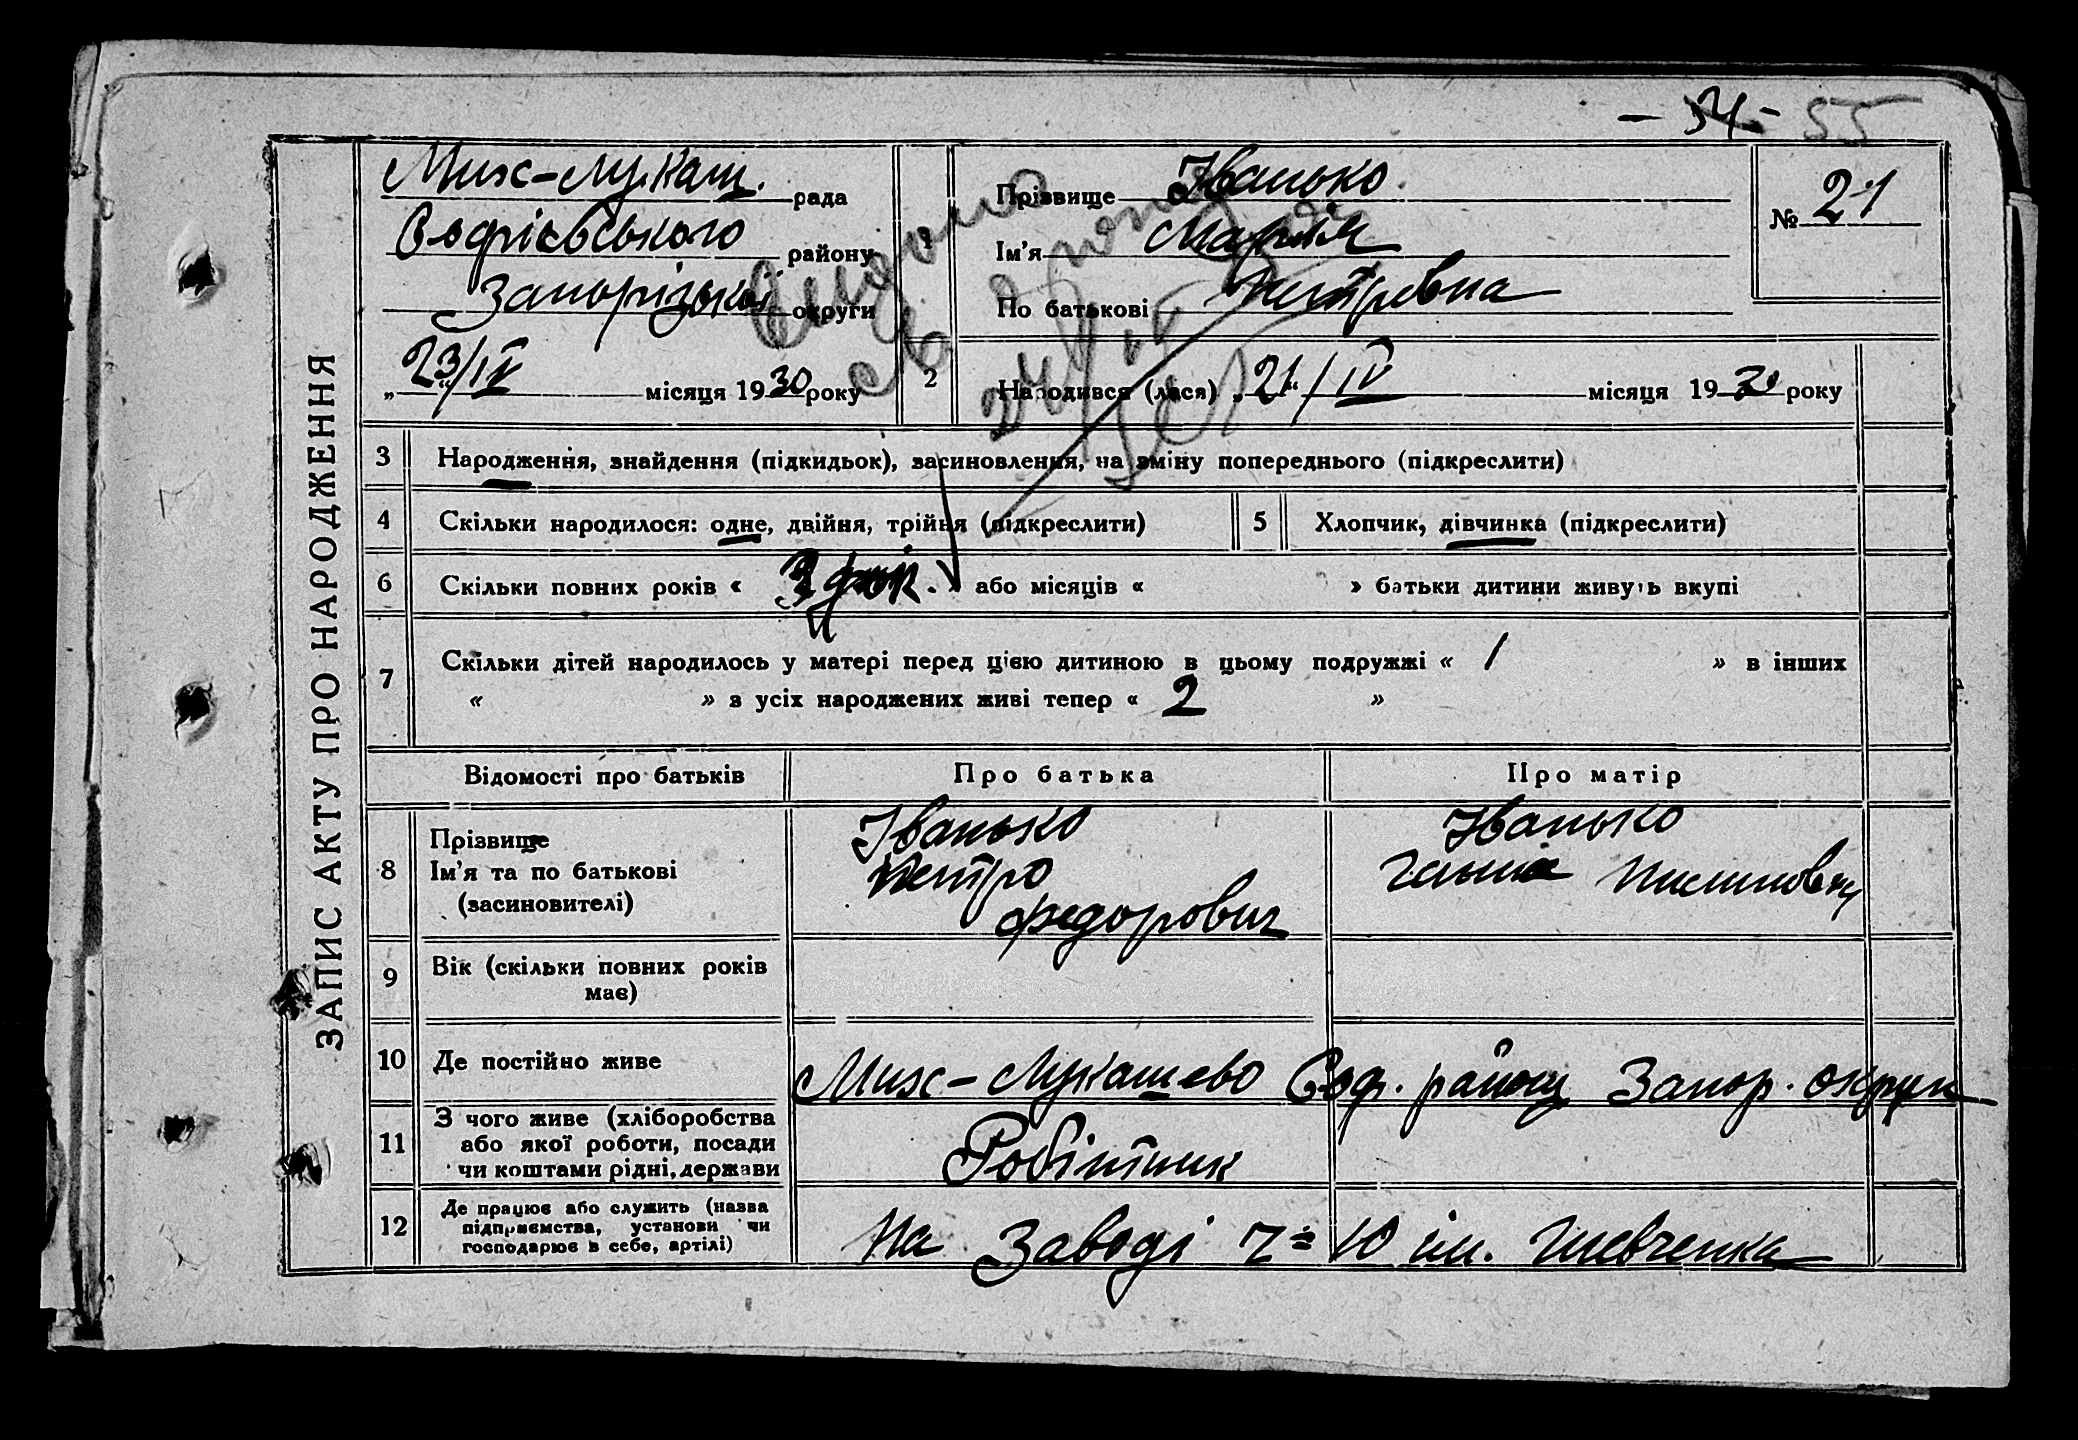 - 54 - 55
ЗАПИС АКТУ ПРО НАРОДЖЕННЯ
Мих-Лукаш. рада
Софієвського району
Запорізької округи
„23“/IV місяця 1930 року
1
Прізвище Іванько
Ім'я Марія
По батькові Петревна
№ 21
2
Народився (лася) „21“/IV місяця 1930 року
Видано
3 Народження, знайдення (підкидьок), засиновлення, на зміну попереднього (підкреслити)
4 Скільки народилося: одне, двійня, трійня (підкреслити) 5 Хлопчик, дівчинка (підкреслити)
6 Скільки повних років « 3 » або місяців « » батьки дитини живуть вкупі
7 Скільки дітей народилось у матері перед цією дитиною в цьому подружжі « 1 » в інших
« » з усіх народжених живі тепер « 2 »
Відомості про батьків Про батька Про матір
8 Прізвище
Ім'я та по батькові
(засиновителі)
Іванько
Петро
Федорович
Іванько
Ганна
9 Вік (скільки повних років
має)
10 Де постійно живе Мих-Лукашево Соф. району Запор. округи
11 З чого живе (хліборобства
або якої роботи, посади
чи коштами рідні, держави
Робітник
12 Де працює або служить (назва
підприємства, установи чи
господарює в себе, артілі)
На Заводі Ч= 10 ім. Шевченка